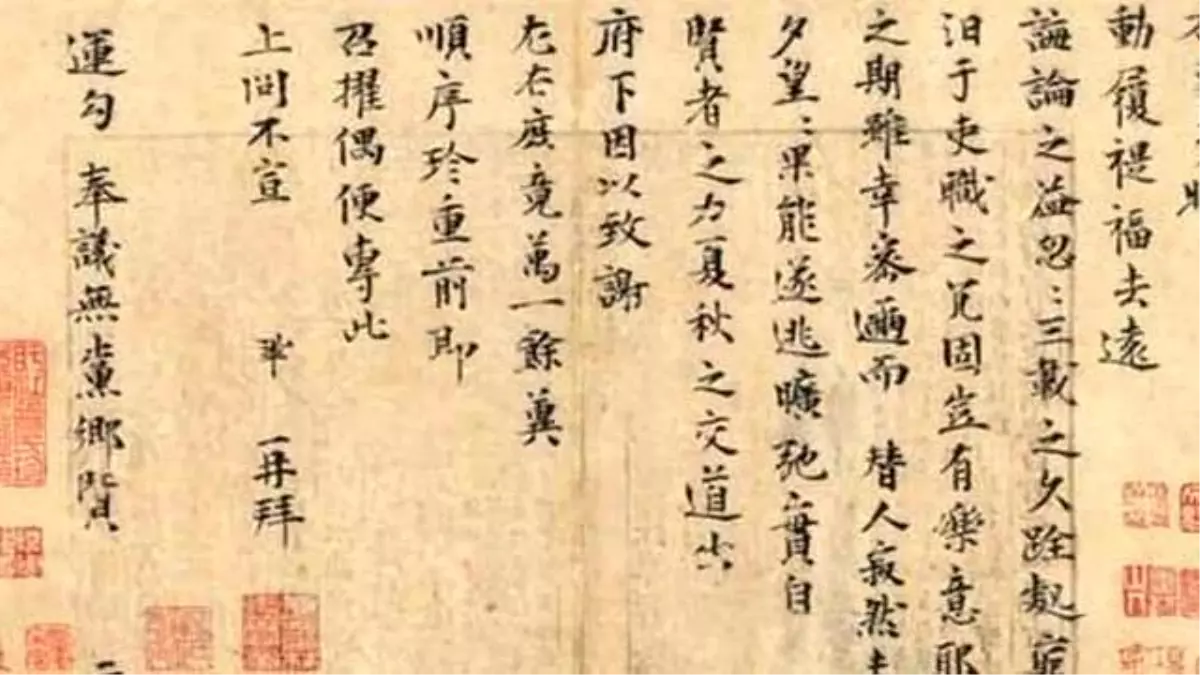 動履禔福去遠
誨論之益忽〻三載之久跧處窮
汨于吏職之冗固豈有樂意耶
之期雖幸密邇而 替人寂然
夕望〻果能遂逃曠弛實自
賢者之力夏秋之交道出
府下因以致謝
左右庶竟萬一餘冀
順序珍重前即
召擢偶便專此
上問不宣 鞏 再拜
運勾 奉議無黨鄉賢
二